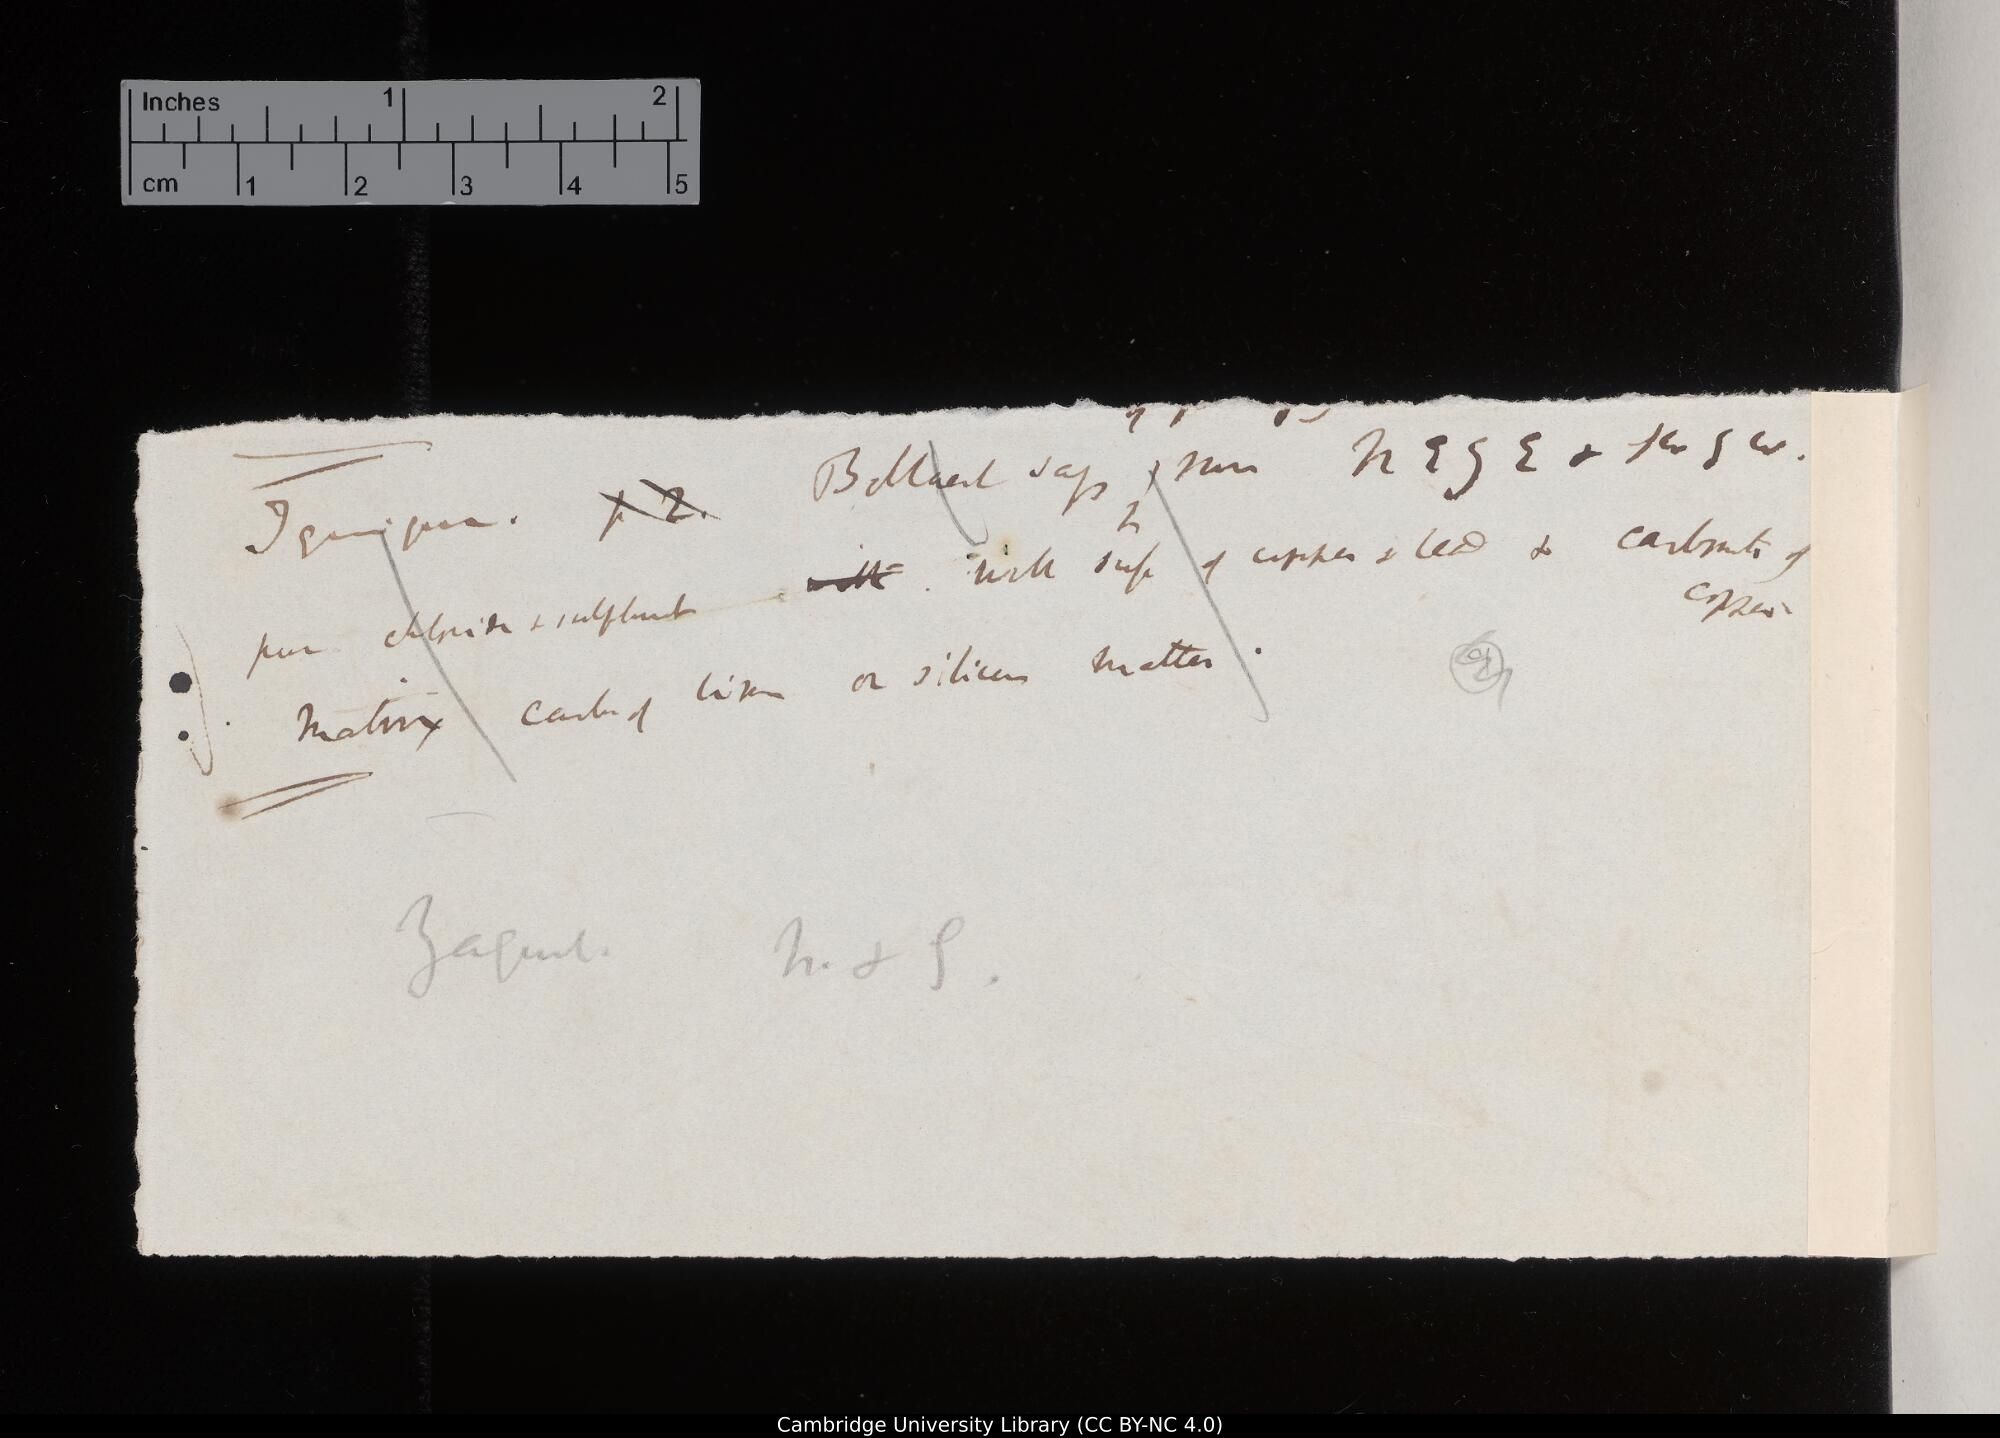 Inches 1 2
cm 1 2 3 4 5
Bollaert says, runs N E g E & SW g W.
p 2.
pure chloride & sulphuret with. with sulp of copper & lead & carbonate of
copper
Matrix carb of lime or siliceous matter.
N. & S.
Cambridge University Library (CC BY-NC 4.0)